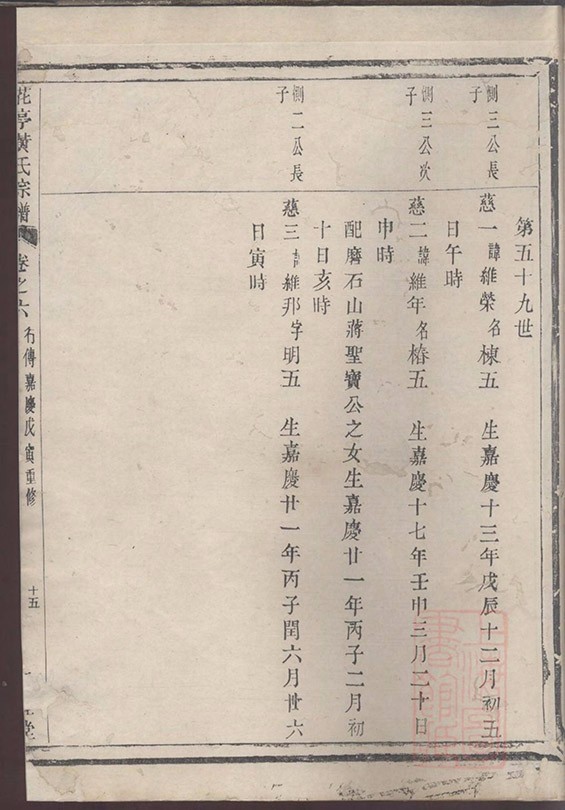 第五十九世
惻三公長
子
慈一諱維榮名棟五 生嘉慶十三年戊辰十二月初五
日午時
惻三公次
子
慈二諱維年名椿五 生嘉慶十七年壬申三月二十日
申時
配磨石山蔣聖寶公之女生嘉慶廿一年丙子二月初
十日亥時
惻二公長
子
慈三諱維邦字明五 生嘉慶廿一年丙子閏六月廿六
日寅時
花亭黃氏宗譜 卷之六 行傳嘉慶戊寅重修 十五 堂